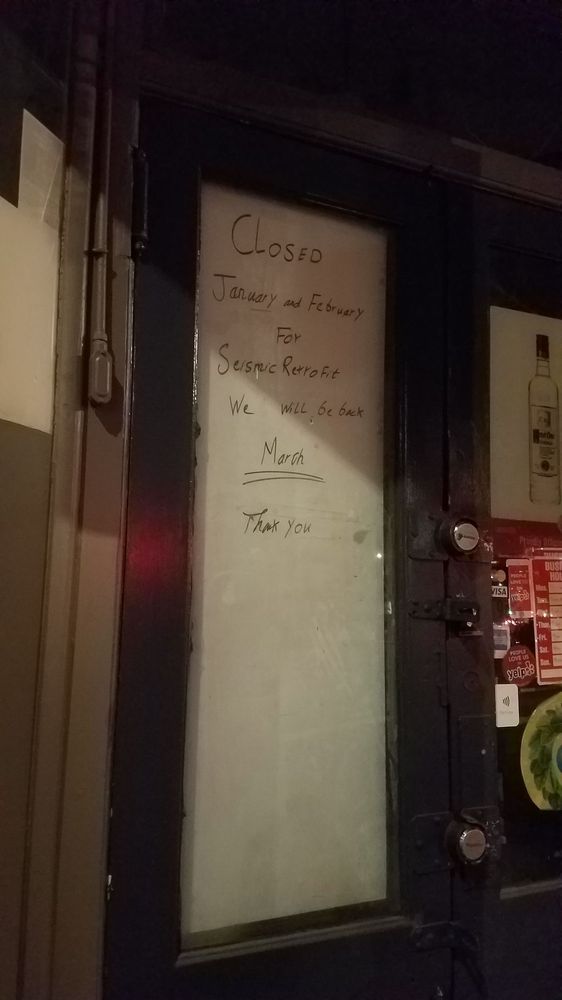 CLOSED
January and February
For
Seismic Retrofit
We will be back
March
Thank you
Ketel One
Proudly
VISA
PEOPLE
LOVE US
ON
yelp
BUSI
HO
Mon.
Tues.
Thur.
Fri.
Sat.
Sun.
PEOPLE
LOVE US
yelp